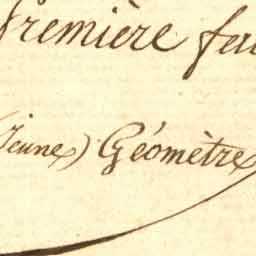 Première feu
(Jeune) Géomètre